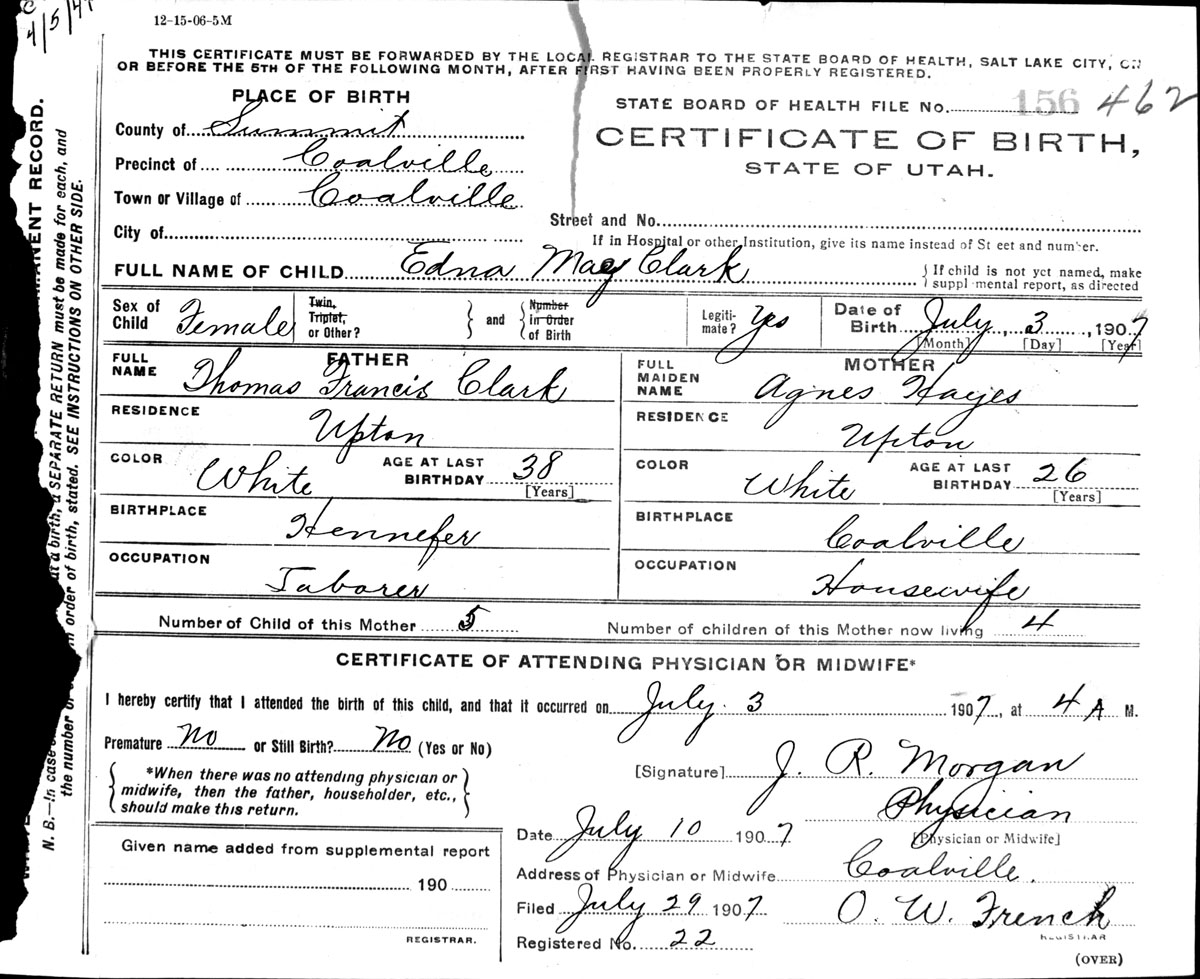 4/5/4
12-15-06-5M
THIS CERTIFICATE MUST BE FORWARDED BY THE LOCAL REGISTRAR TO THE STATE BOARD OF HEALTH, SALT LAKE CITY, ON
OR BEFORE THE 5TH OF THE FOLLOWING MONTH, AFTER FIRST HAVING BEEN PROPERLY REGISTERED.
PLACE OF BIRTH
STATE BOARD OF HEALTH FILE No. 156 462
County of Summit
CERTIFICATE OF BIRTH,
STATE OF UTAH.
Precinct of Coalville
Town or Village of Coalville
Street and No.
City of
If in Hospital or other Institution, give its name instead of St eet and number.
FULL NAME OF CHILD Edna May Clark
If child is not yet named, make
suppl mental report, as directed
Sex of Child Female
Twin, Triplet, or Other?
and
Number in Order of Birth
Legiti-mate? Yes
Date of Birth July 3, 1907
[Month] [Day] [Year]
FATHER
FULL NAME Thomas Francis Clark
RESIDENCE
Upton
COLOR White AGE AT LAST BIRTHDAY 38
[Years]
BIRTHPLACE
Hennefer
OCCUPATION
Laborer
MOTHER
FULL MAIDEN NAME Agnes Hayes
RESIDENCE
Upton
COLOR White AGE AT LAST BIRTHDAY 26
[Years]
BIRTHPLACE
Coalville
OCCUPATION
Housewife
Number of Child of this Mother 5
Number of children of this Mother now living 4
CERTIFICATE OF ATTENDING PHYSICIAN OR MIDWIFE*
I hereby certify that I attended the birth of this child, and that it occurred on July 3 1907, at 4 A M.
Premature No or Still Birth? No (Yes or No)
*When there was no attending physician or
midwife, then the father, householder, etc.,
should make this return.
[Signature] J. R. Morgan
Physician
[Physician or Midwife]
Date July 10 1907
Address of Physician or Midwife Coalville.
Filed July 29 1907 O. W. French
REGISTRAR
Registered No. 22
(OVER)
Given name added from supplemental report
190
REGISTRAR.
MANENT RECORD.
N. B.—In case at a birth, a SEPARATE RETURN must be made for each, and
the number of order of birth, stated. SEE INSTRUCTIONS ON OTHER SIDE.